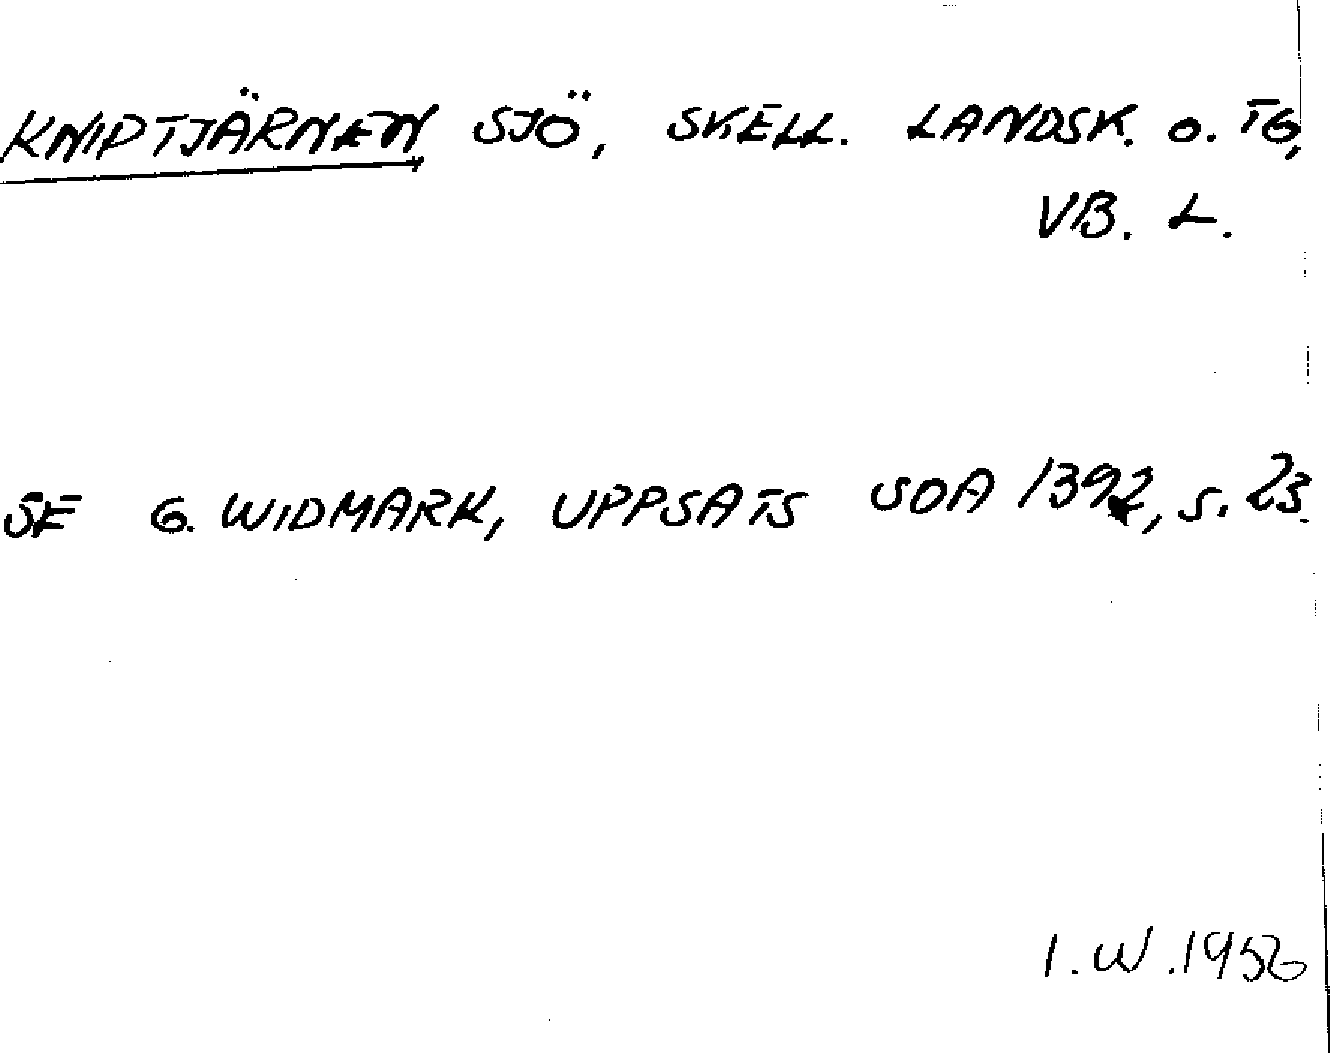 KNIPTJÄRNEN, SJÖ, SKELL. LANDSK. O. TG,
VB. L.
SE G. WIDMARK, UPPSATS SOA 1392, S. 23.
I.W. 1956